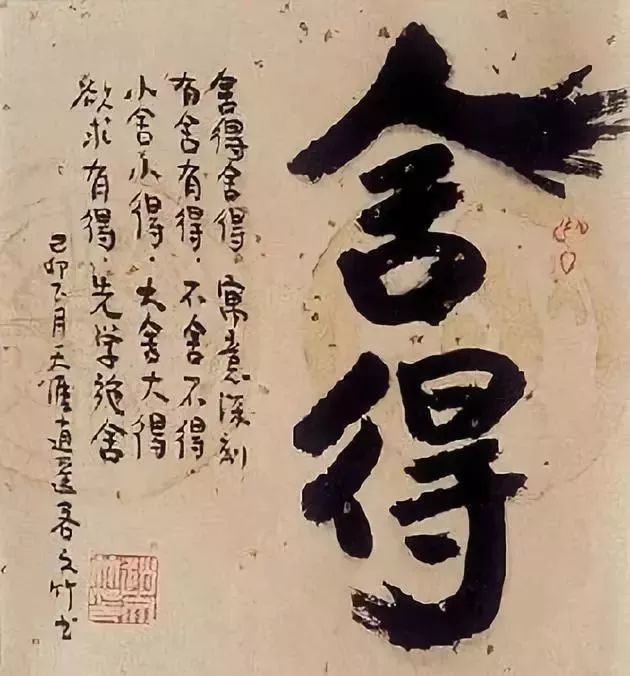 舍得
舍得舍得，寓意深刻
有舍有得，不舍不得
小舍小得，大舍大得
欲求有得，先学施舍
己卯八月天涯逍遥客文竹书